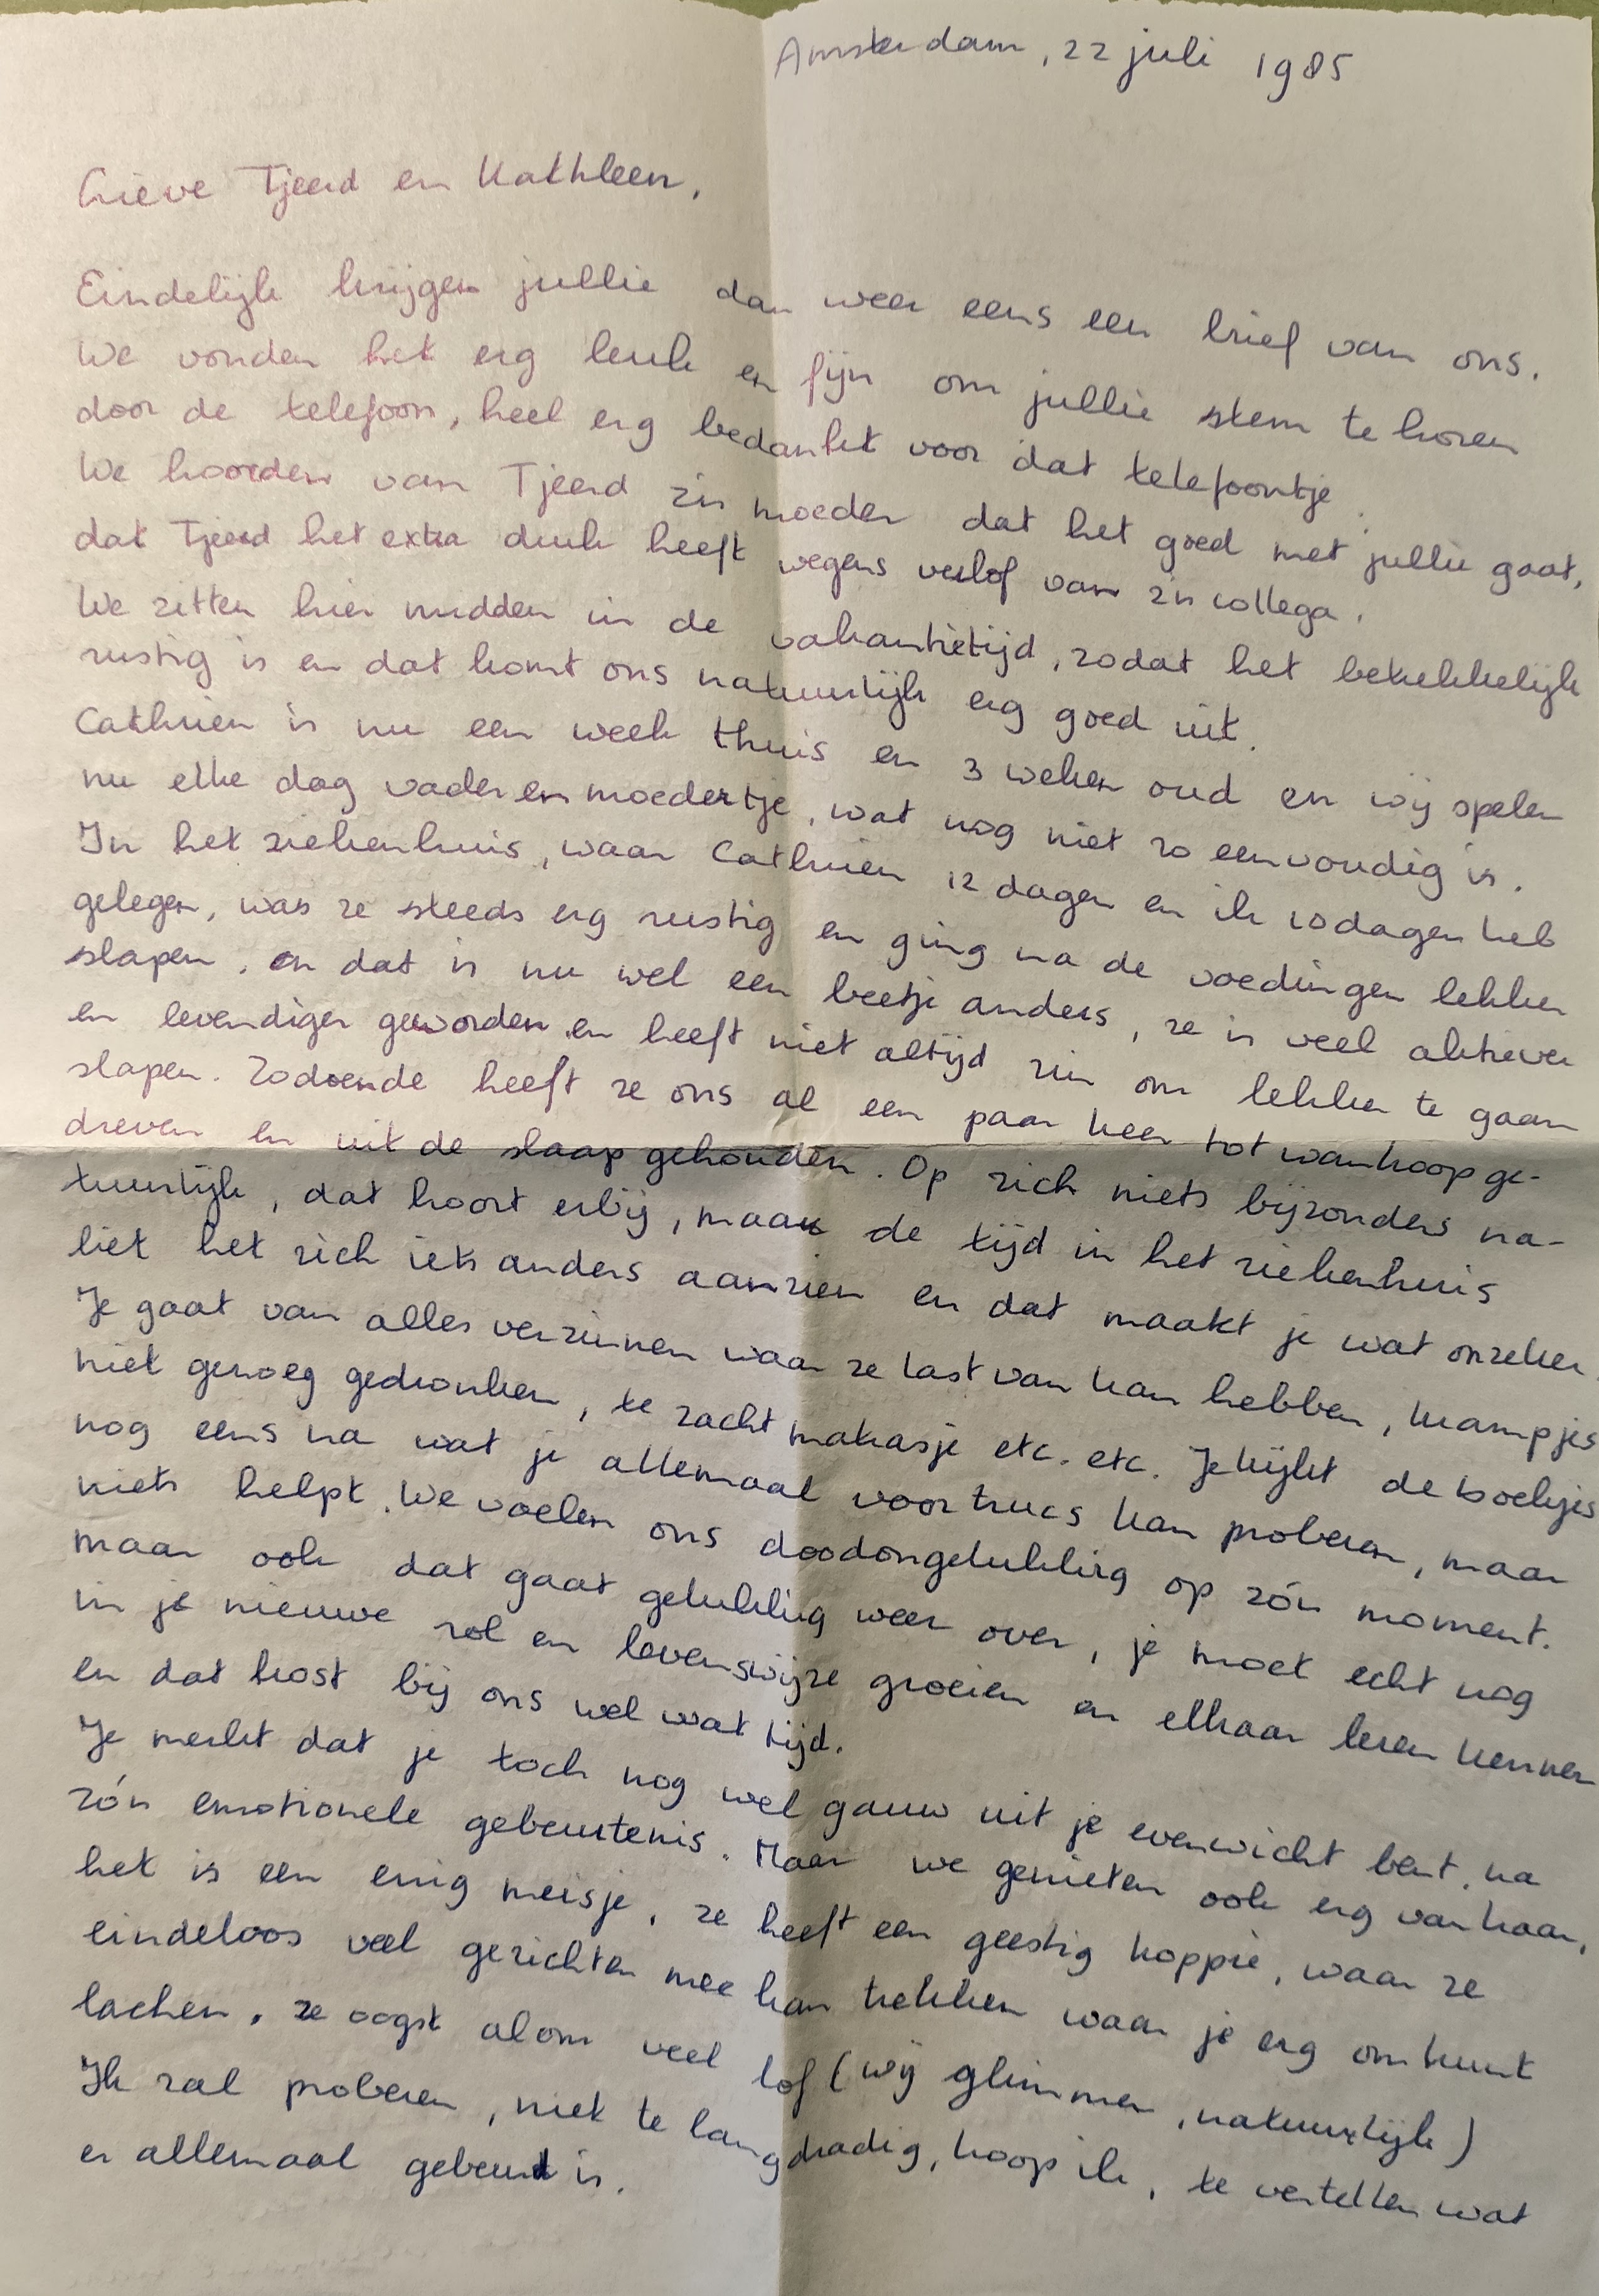 Amsterdam, 22 juli 1985
Lieve Tjeerd en Kathleen,
Eindelijk krijgen jullie dan weer eens een brief van ons.
We vonden het erg leuk en fijn om jullie stem te horen
door de telefoon, heel erg bedankt voor dat telefoontje.
We hoorden van Tjeerd zn moeder dat het goed met jullie gaat,
dat Tjeerd het extra druk heeft wegens verlof van zn collega.
We zitten hier midden in de vakantietijd, zodat het betrekkelijk
rustig is en dat komt ons natuurlijk erg goed uit.
Cathrien is nu een week thuis en 3 weken oud en wij spelen
nu elke dag vader en moedertje, wat nog niet zo eenvoudig is.
In het ziekenhuis, waar Cathrien 12 dagen en ik 10 dagen heb
gelegen, was ze steeds erg rustig en ging na de voedingen lekker
slapen, en dat is nu wel een beetje anders, ze is veel aktiever
en levendiger geworden en heeft niet altijd zin om lekker te gaan
slapen. Zodoende heeft ze ons al een paar keer tot wanhoop ge-
dreven en uit de slaap gehouden. Op zich niets bijzonders na-
tuurlijk, dat hoort erbij, maar de tijd in het ziekenhuis
liet het zich iets anders aanzien en dat maakt je wat onzeker.
Je gaat van alles verzinnen waar ze last van kan hebben, krampjes
niet genoeg gedronken, te zacht matrasje etc. etc. Je kijkt de boekjes
nog eens na wat je allemaal voor trucs kan proberen, maar
niets helpt. We voelen ons doodongelukkig op zó'n moment.
maar ook dat gaat gelukkig weer over, je moet echt nog
in je nieuwe rol en levenswijze groeien en elkaar leren kennen
en dat kost bij ons wel wat tijd.
Je merkt dat je toch nog wel gauw uit je evenwicht bent, na
zó'n emotionele gebeurtenis. Maar we genieten ook erg van haar,
het is een enig meisje, ze heeft een geestig koppie, waar ze
eindeloos veel gezichten mee kan trekken waar je erg om kunt
lachen, ze oogst alom veel lof (wij glimmen, natuurlijk)
Ik zal proberen, niet te langdradig, hoop ik, te vertellen wat
er allemaal gebeurd is.